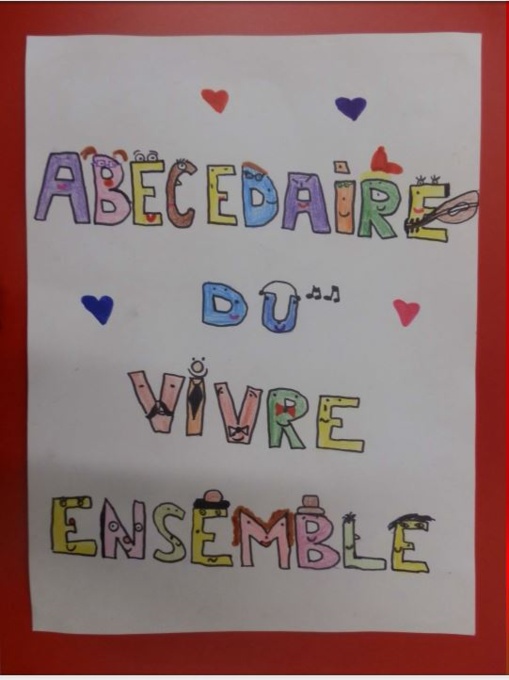 ABECEDAIRE
DU
VIVRE
ENSEMBLE